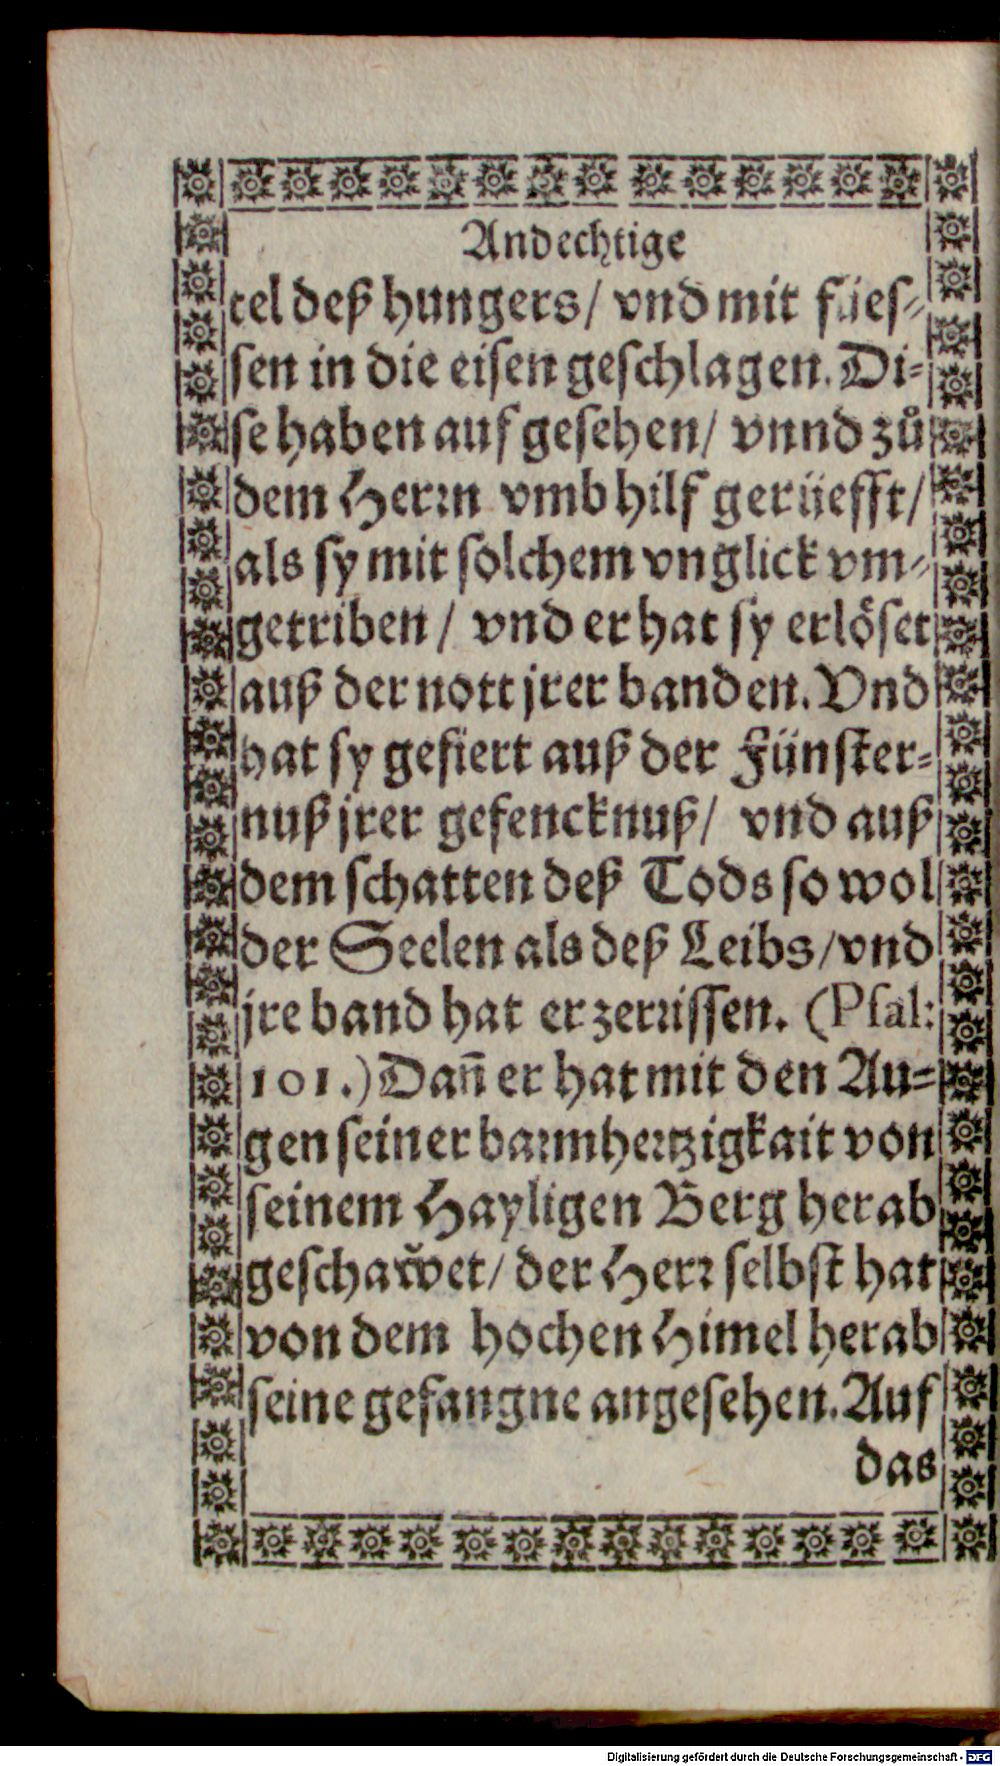 Andechtige
tel deß hungers/ vnd mit fües⸗
sen in die eisen geschlagen. Di⸗
se haben auf gesehen/ vnnd zů
dem Herrn vmb hilf gerüefft/
als sy mit solchem vnglick vm⸗
getriben/ vnd er hat sy erlöset
auß der nott jrer banden. Vnd
hat sy gefiert auß der Fünster⸗
nuß jrer gefencknuß/ vnd auß
dem schatten deß Tods so wol
der Seelen als deß Leibs/vnd
jre band hat er zerrissen. (Psal:
101.) Dañ er hat mit den Au⸗
gen seiner barmhertzigkait von
seinem Hayligen Berg herab
geschaw̆et/ der Herr selbst hat
von dem hochen Himel herab
seine gefangne angesehen. Auf
das
Digitalisierung gefördert durch die Deutsche Forschungsgemeinschaft - DFG